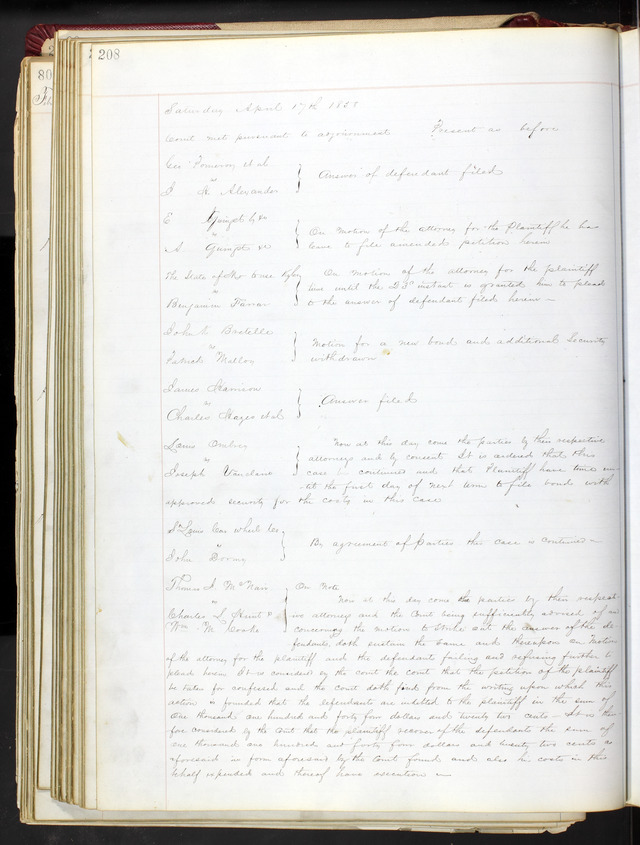 208
80
Saturday April 17th 1858
Court met pursuant to adjournment Present as before
Geo Pomeroy et al
vs
J H Alexander
Answer of defendant filed
E
vs
A
On Motion of the attorney for the Plaintiff he has
leave to file amended petition herein
The State of Mo to use
vs
Benjamin Farrar
On Motion of the attorney for the plaintiff
time until the 23d instant is granted him to plead
to the answer of defendant filed herein
John
vs
Patrick Mallon
Motion for a new bond and additional Security
withdrawn
James Harrison
vs
Charles Hayes et al
Answer filed
Lewis
vs
Joseph Vanslane
Now at this day come the parties by their respective
attorneys and by consent It is ordered that this
case be continued and that Plaintiff have time un-
till the first day of next term to file bond with
approved security for the costs in this case
St Louis Car wheel Co
vs
John Dorony
By agreement of Parties this case is continued
Thomas J. McNair
vs
Charles L Hunt &
Wm M Cooke
On Note
Now at this day come the parties by their respect-
ive attorneys and the Court being sufficiently advised of and
concerning the motion to Strike out the answer of the de-
fendants, doth sustain the Same and thereupon on Motion
of the attorney for the plaintiff and the defendants failing and refusing further to
plead herein It is considered by the court the court that the petition of the plaintiff
be taken for confessed and the court doth find from the writing upon which this
action is founded that the defendants are indebted to the plaintiff in the sum of
One thousand one hundred and forty four dollars and twenty two cents It is there-
fore considered by the Court that the plaintiff recover of the defendants the sum of
one thousand one hundred and forty four dollars and twenty two cents as
aforesaid in form aforesaid by the Court found and also his costs in this
behalf expended and thereof have execution